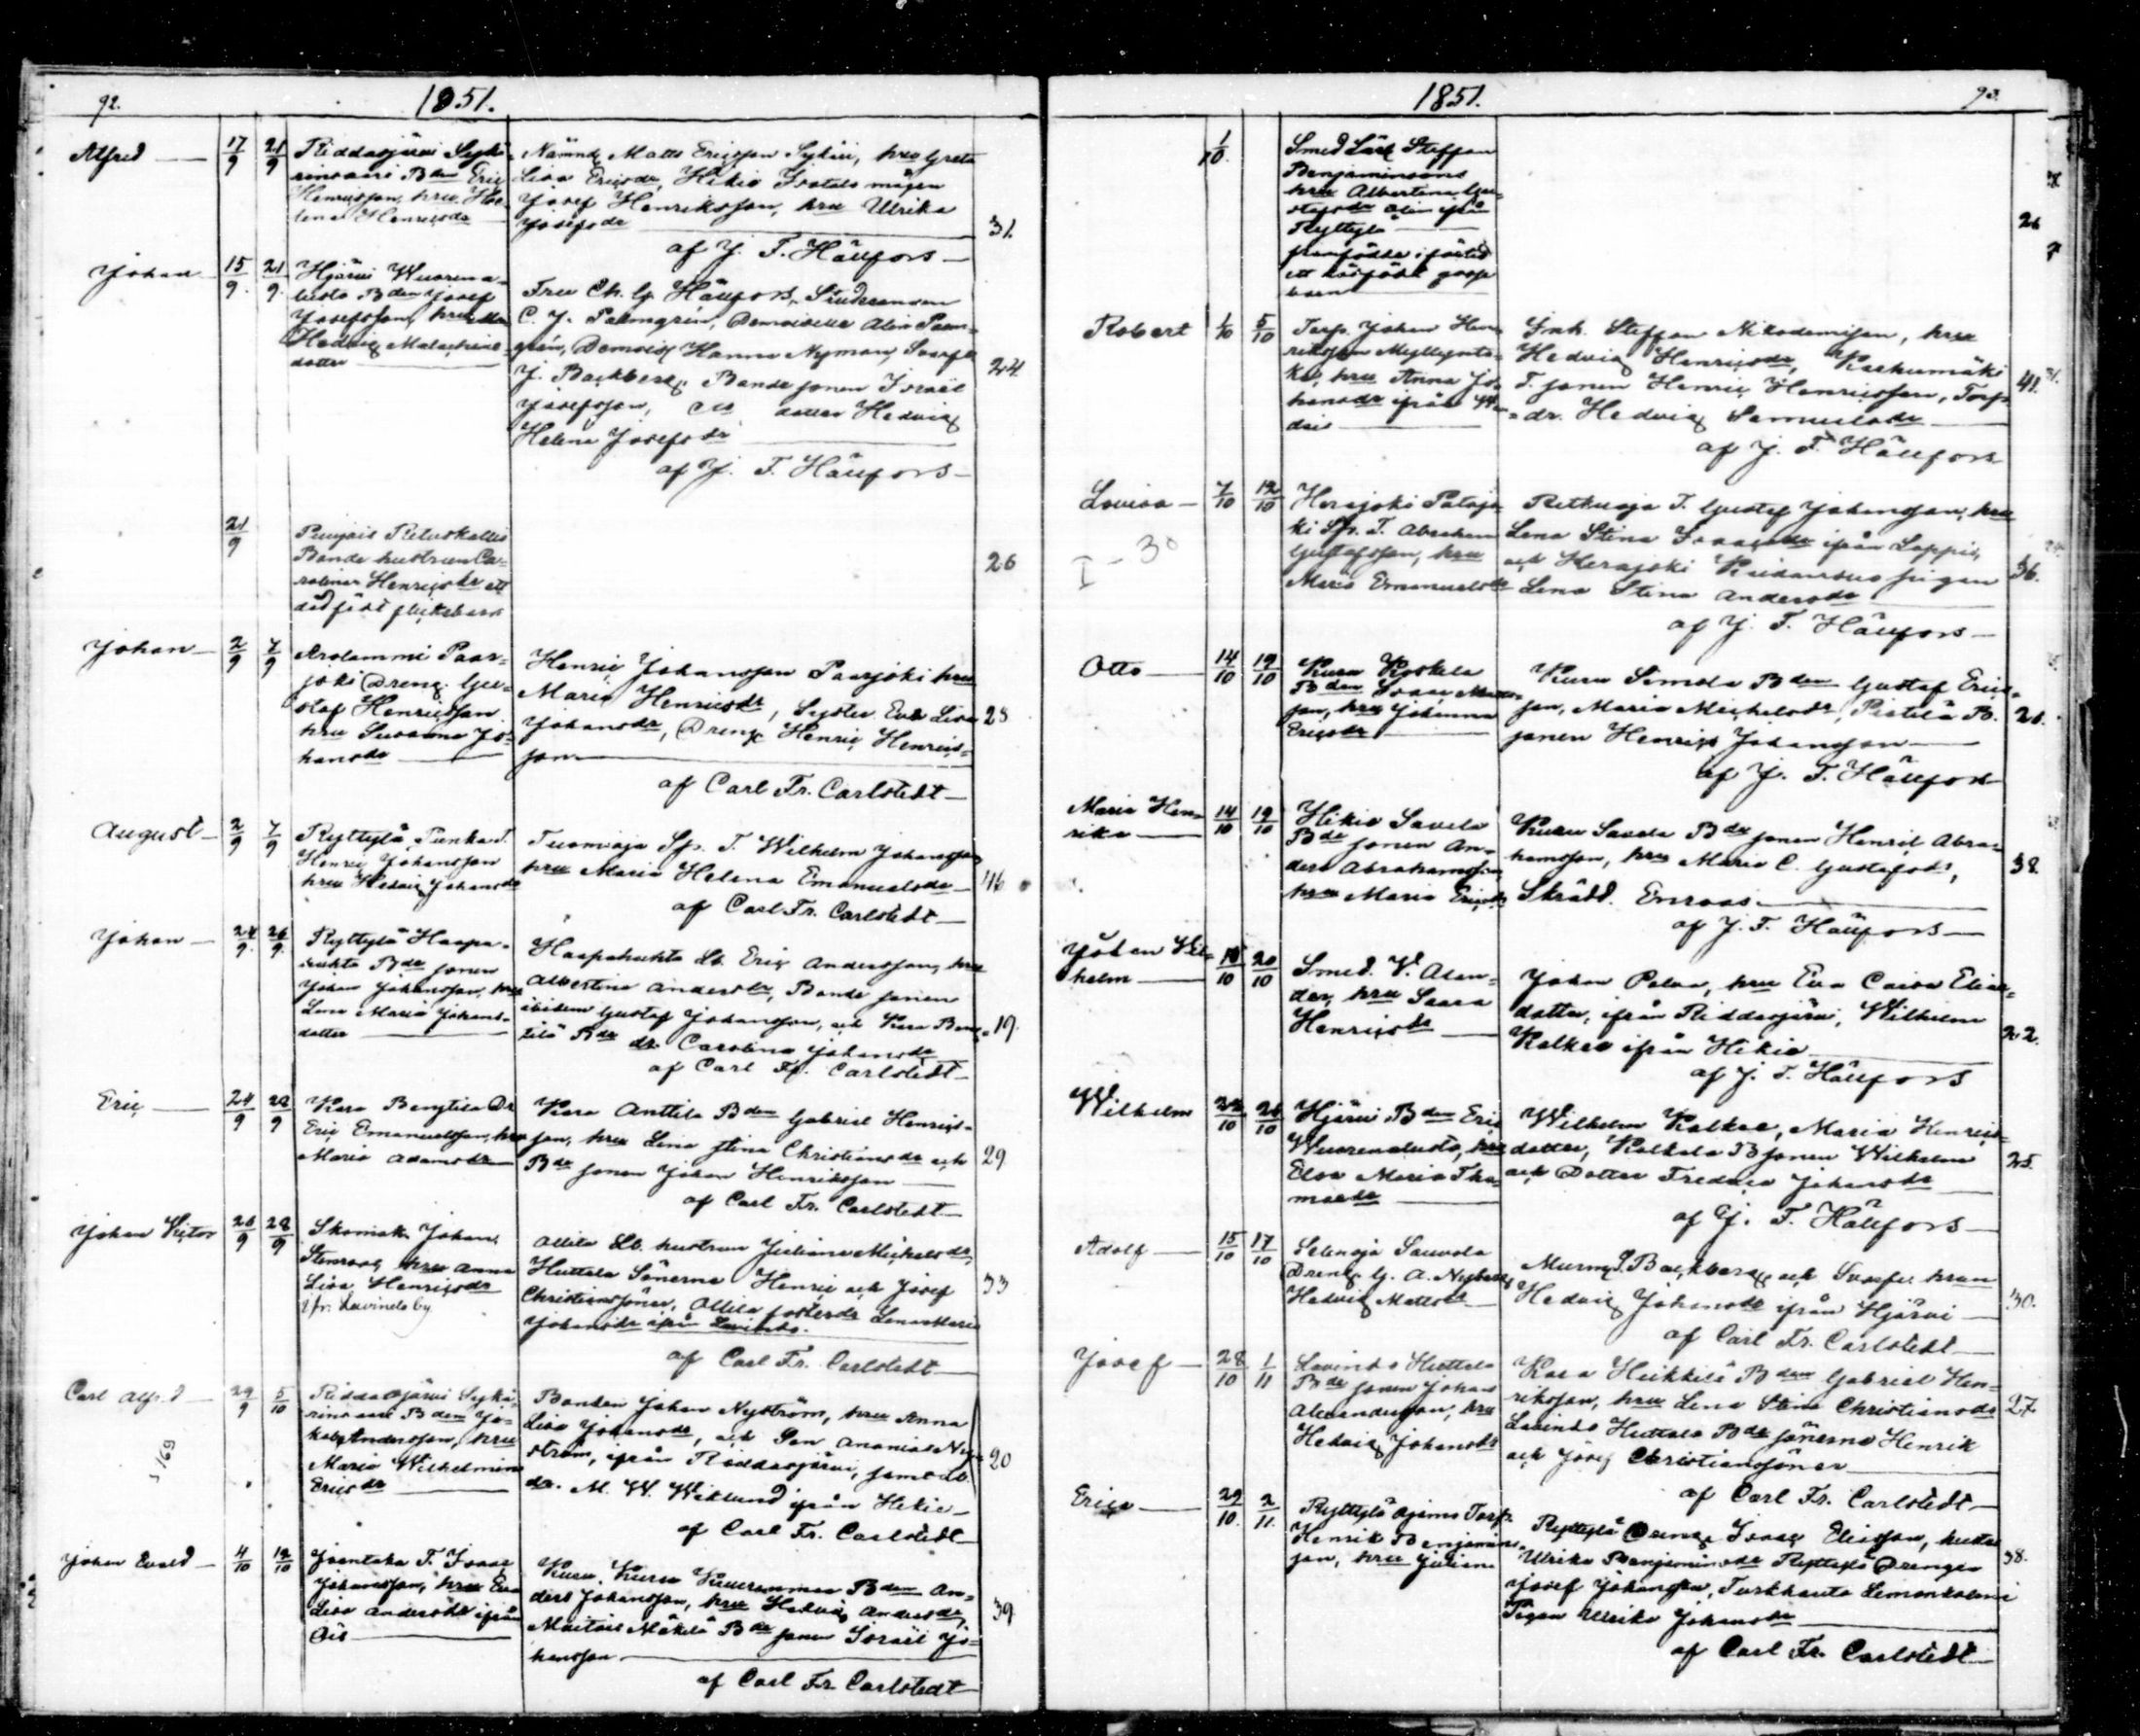 92.
1851.
Alfred — 17/9 21/9
Riddasjärvi Sykä-
rinoinni Bden Eric
Henricsson, hru He-
lena Henricsdr
Nämnd. Matts Ericsson Sykäri, hru Greta
Lisa Ericsdr, Hikiä Isotalo mågen
Josef Henriksson, hru Ulrika
Josefsdr
31.
af J. T. Hällfors
Johan 15/9 21/9
Hjärvi Wuorena-
lusta Bden Josef
Josefsson, hru
Hedvig Malachias
dotter
Fru Ch. G. Hällfors, Studeranden
C. J. Palmgrén, Demoiselle Alin Palm-
grén, Demois. Hanna Nyman,
J. Backberg, Bonde sonen Israël
Josefsson, dotter Hedvig
Helena Josefsdr
24
af J. T. Hällfors
21/9
Punjais Retuskallis
Bonde hustrun Ca-
rolina Henricsdr ett
dödfödt flickebarn
26
Johan — 2/9 7/9
Arolammi Paar-
joki Dreng. Gu-
staf Henricsson
hru Susanna Jo-
hansdr
Henric Johansson Paarjoki hru
Maria Henricsdr, Syster Eva Lisa
Johansdr, Dreng Henric Henrics-
son
25
af Carl Fr. Carlstedt
August — 2/9 7/9
Ryttylä Punka T.
Henric Johansson
hru Hedvig Johansdr
Tuomioja Sp. T. Wilhelm Johansson,
hru Maria Helena Emanuelsdr
46
af Carl Fr. Carlstedt
Johan — 24/9 26/9
Ryttylä Haapa-
huhta Bde sonen
Johan Johansson, hru
Lena Maria Johans-
dotter
Haapahuhta Eric Andersson, hru
Albertina Andersdr, Bonde sonen
ibidem Gustaf Johansson, och Kara Beng-
tilä Bde dr. Carolina Johansdr
19.
af Carl Fr. Carlstedt
Eric — 24/9 28/9
Kara Bengtilä Dr
Eric Emanuelsson, hru
Maria Adamsdr
Kara Anttila Bden Gabriel Henrics-
son, hru Lena Stina Christiansdr och
Bde sonen Johan Henriksson
29
af Carl Fr. Carlstedt
Johan Victor 26/9 28/9
Skomak. Johan
Stenroos, hru Anna
Lisa Henricsdr
ifr. Lavinto by
Ollila hustrun Juliana Michelsdr,
Huttala Sönerna Henric och Josef
Christianssöner, Ollila fosterdr Lena Maria
Johansdr ifrån Lavinto.
33
af Carl Fr. Carlstedt
Carl Alfred — 29/9 5/10
Riddasjärvi Sykä-
rinoinni Bden Ja-
kob Andersson, hru
Maria Wilhelmina
Ericsdr
Bonden Johan Nyström, hru Anna
Lisa Johansdr, och Son Ananias Ny-
ström, ifrån Riddasjärvi, samt
dr. M. W. Wiklund ifrån Hikiä
20
af Carl Fr. Carlstedt
s 169
Johan Evald — 4/10 12/10
Joentaka T. Isaac
Johansson, hru Eva
Lisa Andersdr ifrån
Ois
Kuru Bden An-
ders Johansson, hru Hedvig Andersdr,
Mäkelä Bde sonen Israël Jo-
hansson
39
af Carl Fr. Carlstedt
1851.
93.
1/10.
Smed Lärl. Steffan
Benjaminsons
hru Albertina Gu-
stafsdr ifrån
Ryttylä
framfödde i förtid
ett dödfödt gosse
barn
26
Robert 1/10 5/10
Torp. Johan Hen-
riksson
hru Anna Jo-
hansdr ifrån
Inh. Steffan Nikodemisson, hru
Hedvig Henricsdr,
T. sonen Henric Henricsson, Torp.
dr. Hedvig Samuelsdr
41.
af J. T. Hällfors
Lovisa — 7/10 12/10
Herajoki Patajo-
ki Sp. T. Abraham
Gustafsson, hru
Maria Emanuelsdr
Retkuoja T. Gustaf Johansson, hru
Lena Stina Isaacsdr ifrån Loppis,
och Herajoki pigan
Lena Stina Andersdr
36.
af J. T. Hällfors
I — 30
Otto — 14/10 19/10
Kuru Koskela
Bden Isaac
son, hru Johanna
Ericsdr
Kuru Simola Bden Gustaf Erics-
son, Maria Michelsdr, Pietilä B.
sonen Henric Johansson
21.
af J. T. Hällfors
Maria Hen-
rika — 14/10 19/10
Hikiä Savela
Bde sonen An-
ders Abrahamsson
hru Maria Ericsdr
Kuru Savela Bde sonen Henric Abra-
hamsson, hru Maria C. Gustafsdr,
Skrädd. Enroos
38
af J. T. Hällfors
Johan Wil-
helm — 18/10 20/10
Smed. V. Alan-
der, hru Saara
Henricsdr
Johan Palea, hru Eva Caisa Elias-
dotter, ifrån Riddasjärvi, Wilhelm
Kalkea ifrån Hikiä
22.
af J. T. Hällfors
Wilhelm 22/10 26/10
Hjärvi Bden Eric
Wuorenalusta, hru
Elsa Maria Tho-
masdr
Wilhelm Kalkea, Maria Henrics-
dotter, Kalkela B sonen Wilhelm
och Dotter Fredrica Johansdr
25.
af J. T. Hällfors
Adolf — 15/10 17/10
Selenoja Sauvola
Dreng G. A. Nyberg
Hedvig Mattsdr
Murm. J. Backberg, och hru
Hedvig Johansdr ifrån Hjärvi
30.
af Carl Fr. Carlstedt
Josef — 28/10 1/11
Lavinto Huttala
Bde sonen Johan
Alexandersson, hru
Hedvig Johansdr
Kara Heikkilä Bden Gabriel Hen-
riksson, hru Lena Stina Christiansdr
Lavinto Huttala Bde sönerna Henrik
och Josef Christianssöner
27.
af Carl Fr. Carlstedt
Erica — 29/10. 2/11.
Ryttylä Ojains Torp.
Henrik Benjamins-
son, hru Juliana
Ryttylä Dreng Isaac Eliasson, hustru
Ulrika Benjaminsdr Ryttylä Drengen
Josef Johansson, Turkhauta
Pigan Ulrika Johansdr
38.
af Carl Fr. Carlstedt